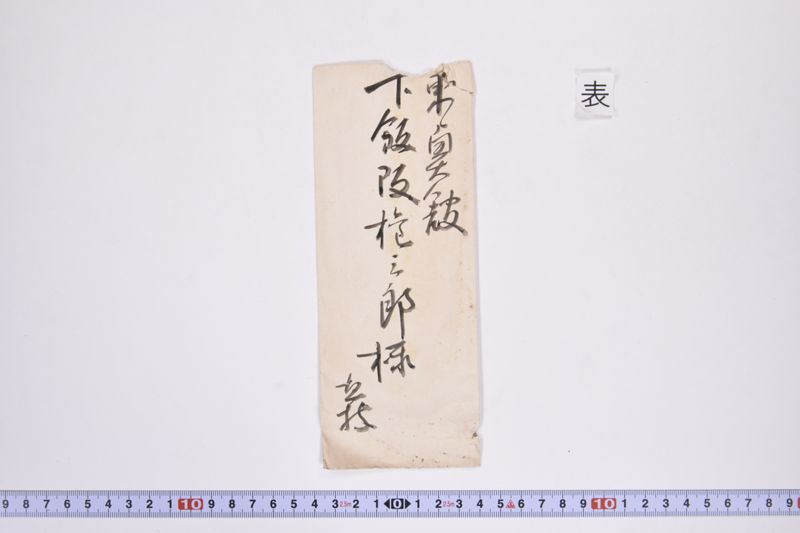 表
東奥舘
下飯阪権三郎様
直披
9 8 7 6 5 4 3 2 1 10 9 8 7 6 5 4 3 2.5m 2 1 0 1 2 2.5m 3 4 5 6 7 8 9 10 1 2 3 4 5 6 7 8 9